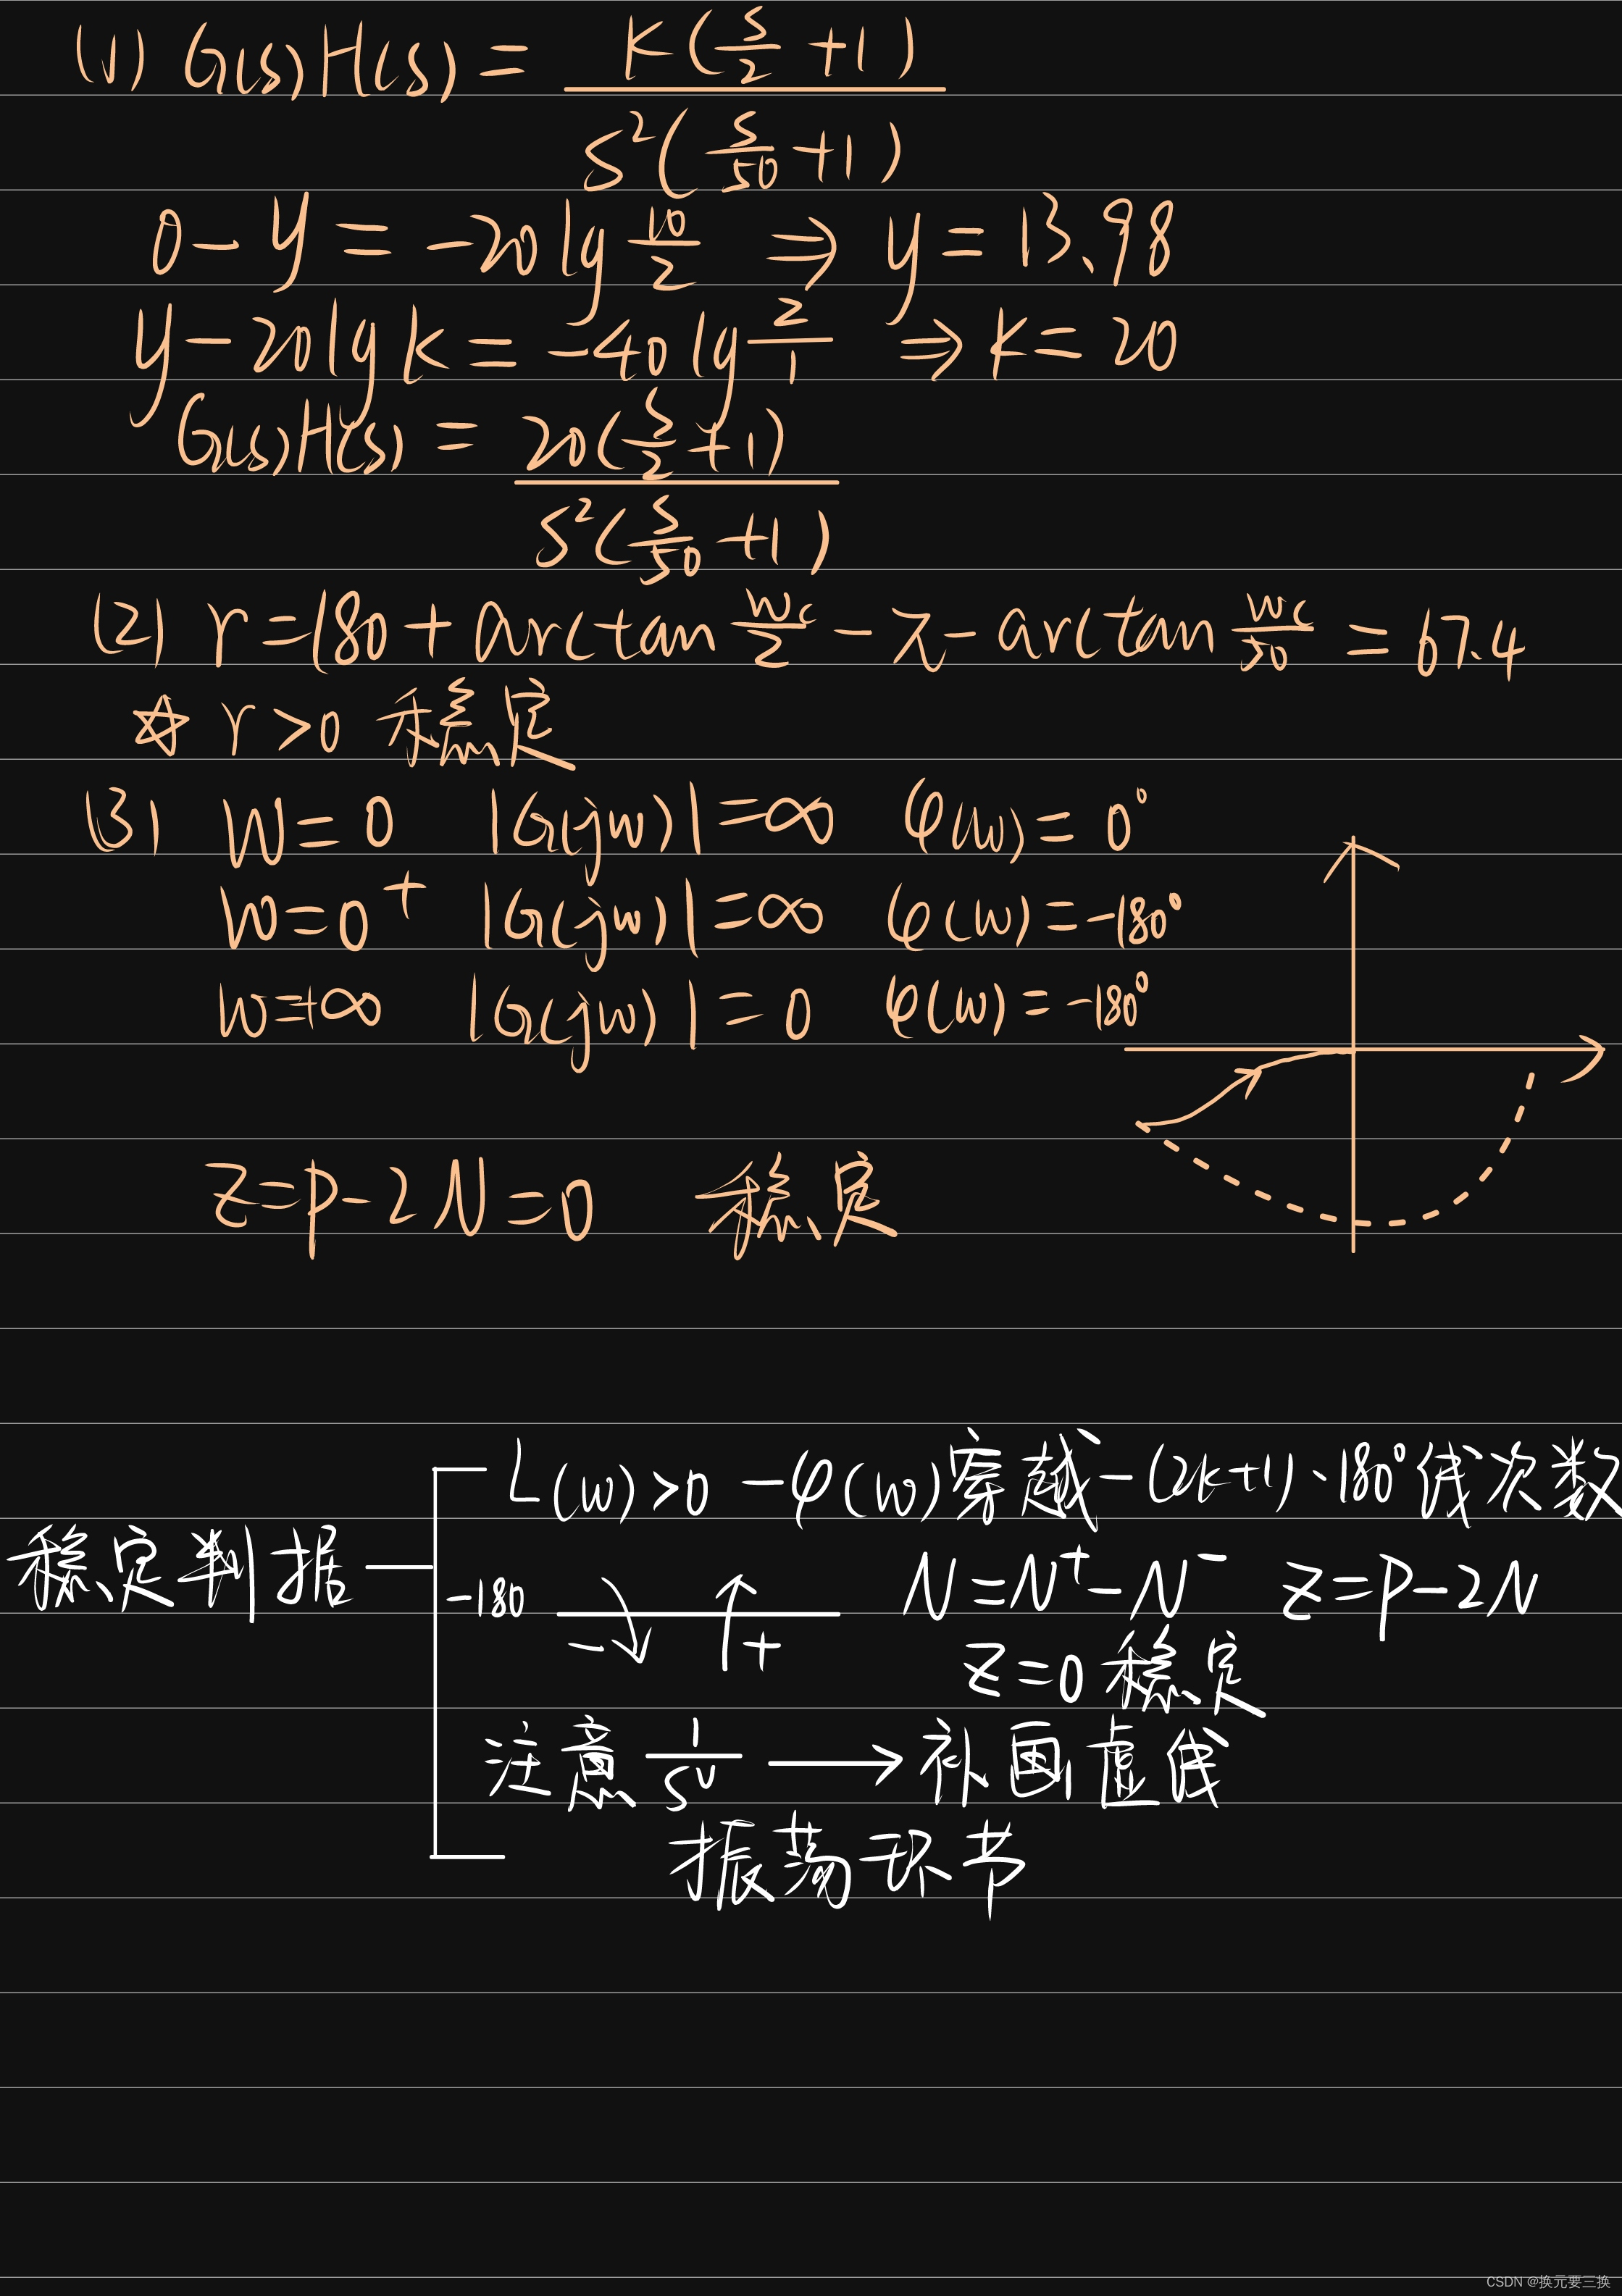 (1) G(s)H(s) = K(s/2 +1) / s²(s/50 +1)
0 - y = -20lg 10/2 ⇒ y = 13.98
y - 20lg k = -40 lg 2/1 ⇒ k = 20
G(s)H(s) = 20(s/2 +1) / s²(s/50 +1)
(2) r = 180 + arctan wc/2 - π - arctan wc/50 = 67.4
☆ r > 0 稳定
(3) W = 0 |G(jw)| = ∞ φ(w) = 0°
W = 0⁺ |G(jw)| = ∞ φ(w) = -180°
w = +∞ |G(jw)| = 0 φ(w) = -180°
Z = P - 2N = 0 稳定
L(w) > 0 - φ(w) 穿越 -(2k+1)·180° 线次数
稳定判据
-180 - + N = N⁺ - N⁻ Z = P - 2N
Z = 0 稳定
注意 1/sᵛ → 补画虚线
振荡环节
CSDN @换元要三换